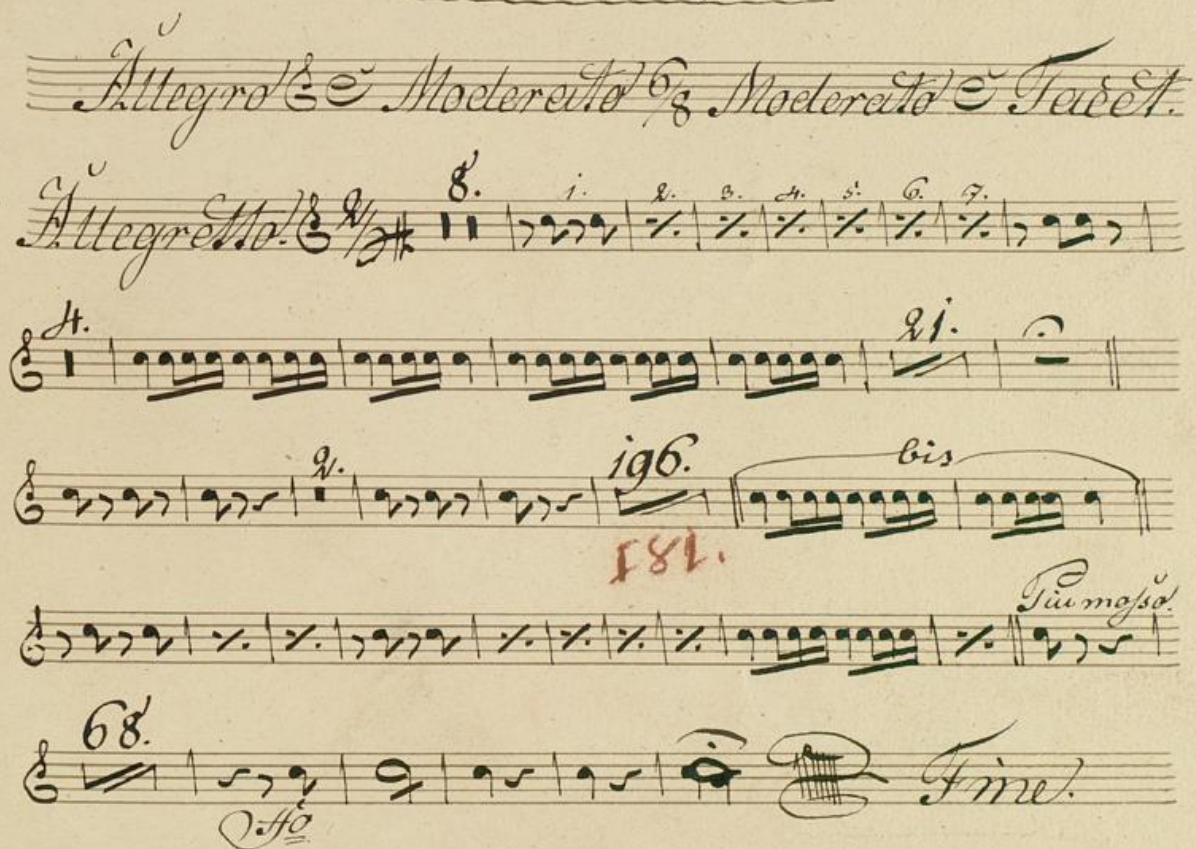 Allegro C Moderato 6/8 Moderato C Tacet.
Allegretto. 2/4 8. 1. 2. 3. 4. 5. 6. 7.
4. 21.
2. 196. bis
181.
Piu mosso.
68. Fine.